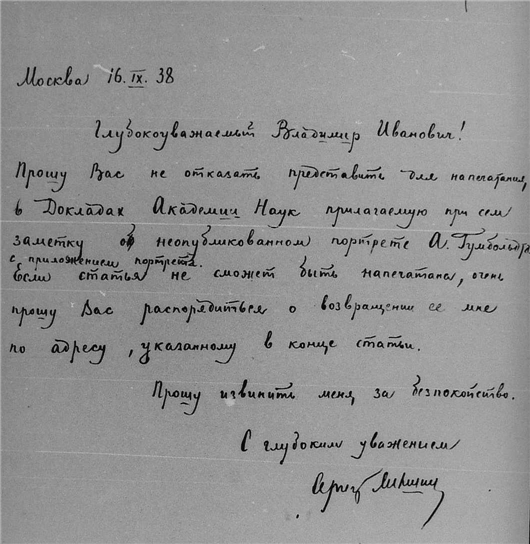 Москва 16.IX.38
Глубокоуважаемый Владимир Иванович!
Прошу Вас не отказать представить для напечатания,
в Докладах Академии Наук прилагаемую при сем
заметку о неопубликованном портрете А. Гумбольдта
с приложением портрета.
Если статья не сможет быть напечатана, очень
прошу Вас распорядиться о возвращении ее мне
по адресу, указанному в конце статьи.
Прошу извинить меня за безпокойство.
С глубоким уважением
Сергей